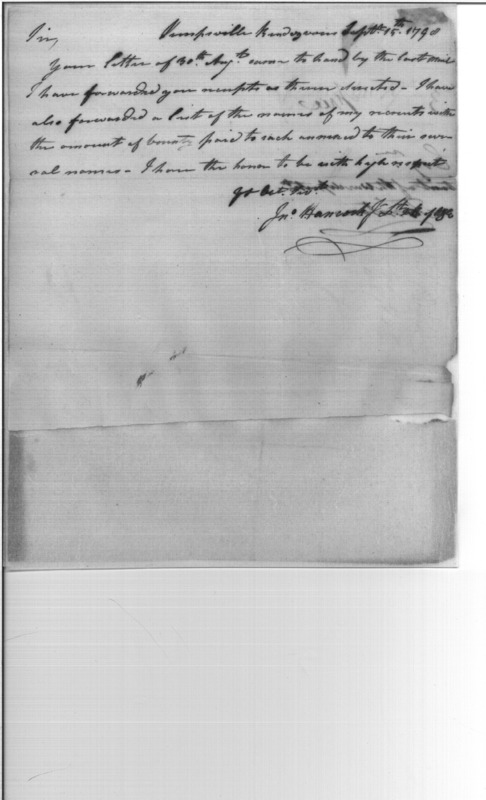 Sir, Kempsville Rendezvous Septr. 15th. 1798
Your Letter of 30th. Augt. came to hand by the last mail
I have forwarded you receipts as therein directed - I have
also forwarded a List of the names of my recruits with
the amount of bounty paid to each annexed to their seve-
ral names - I have the honor to be with high respect
Yr Obt. Servt.
Jno. Hancock Jr Lt.